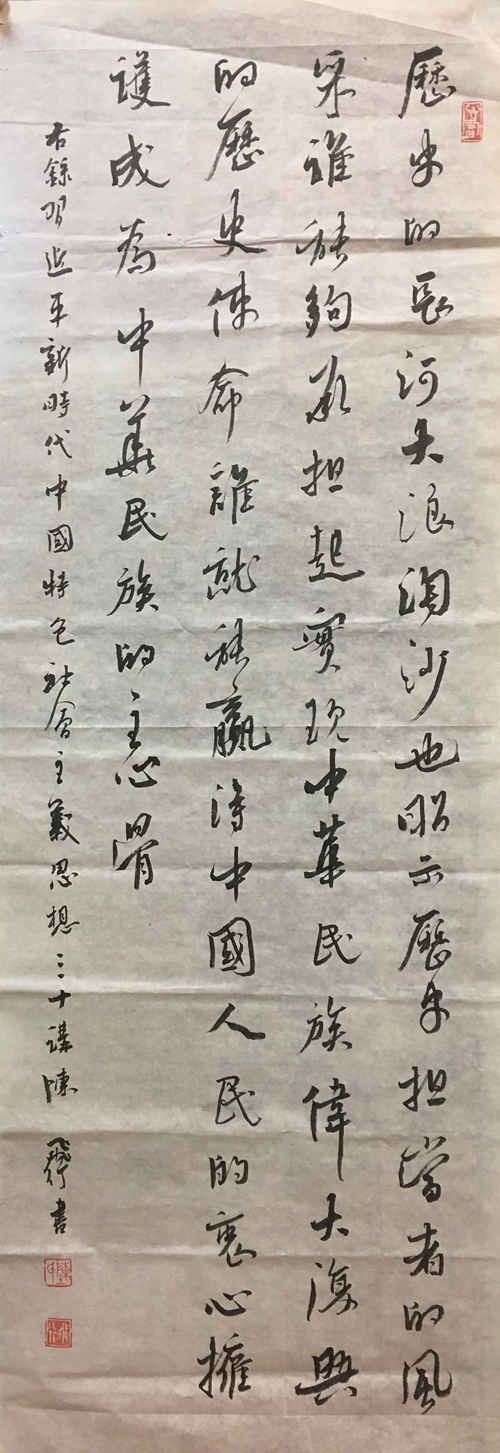 歷史的長河大浪淘沙也昭示歷史担當者的風
采誰能夠承担起實現中華民族偉大復興
的歷史使命誰就能贏得中國人民的衷心擁
護成為中華民族的主心骨
右錄習近平新時代中國特色社會主義思想三十講陳飛行書